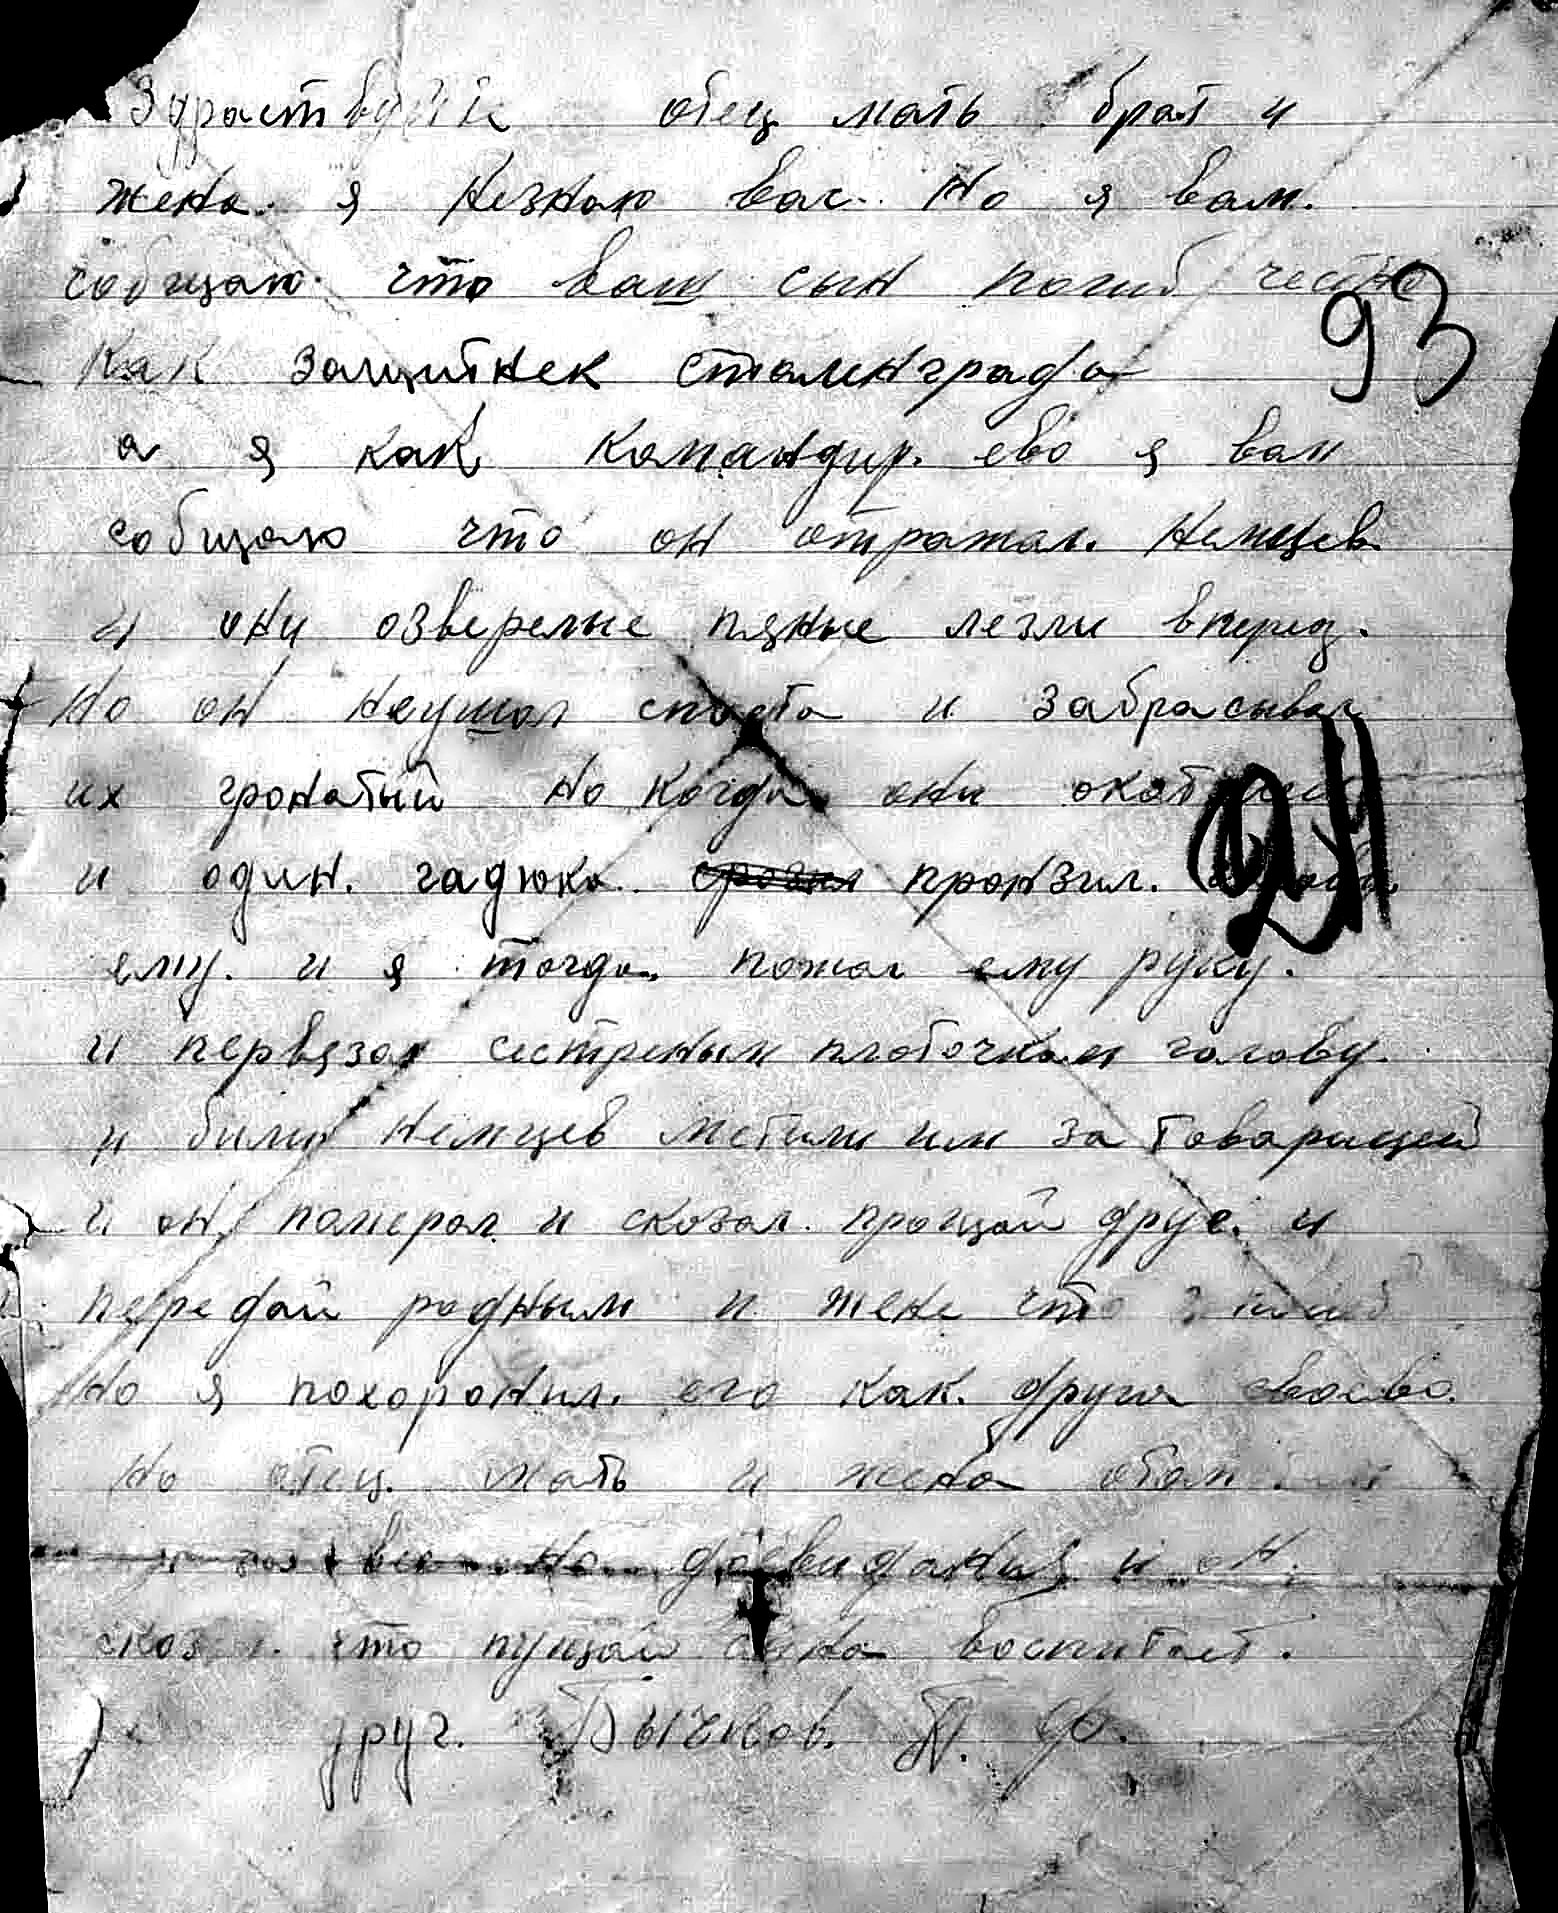 Здраствуйте отец мать брат и
жена. я незнаю вас. Но я вам.
собщаю. что ваш сын погиб честно
как защитнек сталинграда
93
а я как командир. ево я вам
собщаю что он отражал. Немцев.
и они озверелые пяные лезли вперед.
Но он неушол споста и забрасывал
их гронатый но когда они
и один. гадюка. пронзил.
ему. и я тогда. пожал ему руку.
и первязал сестреным плоточкам голову.
и били Немцев мстили им за товарищей
и он, памерал и сказал. прощай друг. и
передай родным и жене что
Но я похоронил. его как. друга своево.
но отец. мать и жена
все но досвидания и он.
что пущай сына воспитает.
друг. Бычков. П. Ф.